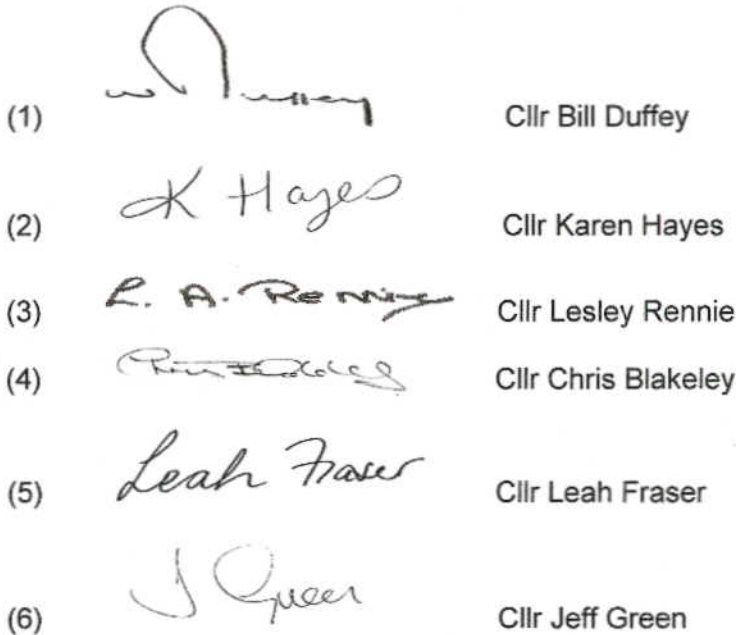 (1) W Duffey Cllr Bill Duffey
(2) K Hayes Cllr Karen Hayes
(3) L. A. Rennie Cllr Lesley Rennie
(4) Cllr Chris Blakeley
(5) Leah Fraser Cllr Leah Fraser
(6) J Green Cllr Jeff Green